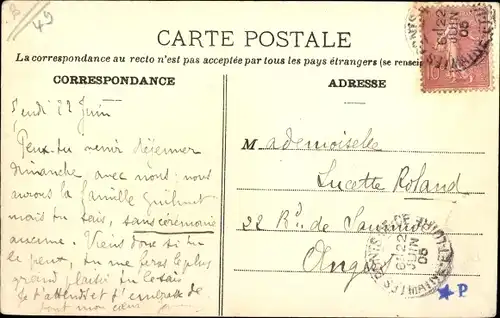 B
49
CARTE POSTALE
La correspondance au recto n'est pas acceptée par tous les pays étrangers (se rensei
CORRESPONDANCE
ADRESSE
Jeudi 22 Juin
Peux-tu venir déjeuner
dimanche avec nous ; nous
aurons la famille
mais tu sais, sans cérémonie
aucune. Viens donc si tu
le peux, tu me feras le plus
grand plaisir tu le sais
je t'attends et t'embrasse de
tout mon cœur
Mademoiselle
Lucette Roland
22 Rd. de
Angers
10
22
JUIN
05
22
JUIN
05
MAINE-ET-LOIRE
★ P